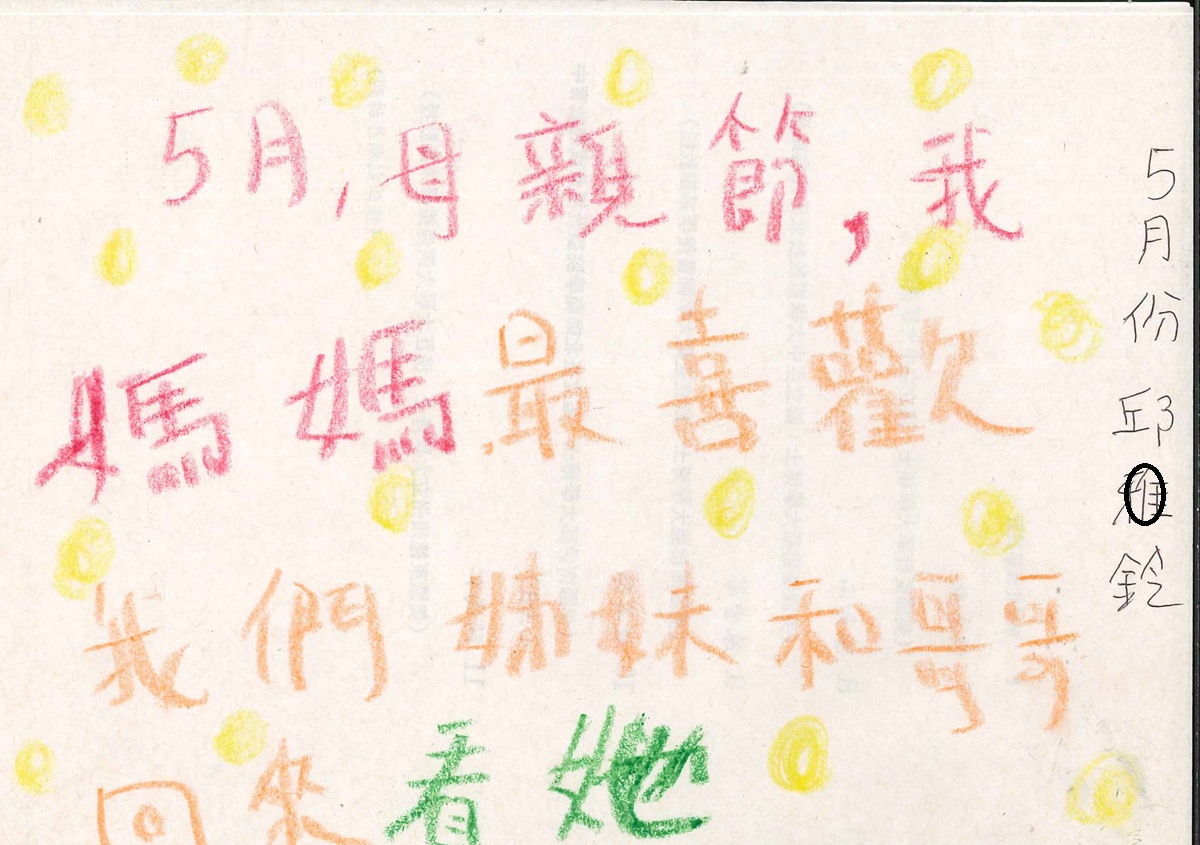 5月,母親節,我
媽媽最喜歡
我們姊妹和哥哥
回來看她
5月份 邱雅鈴